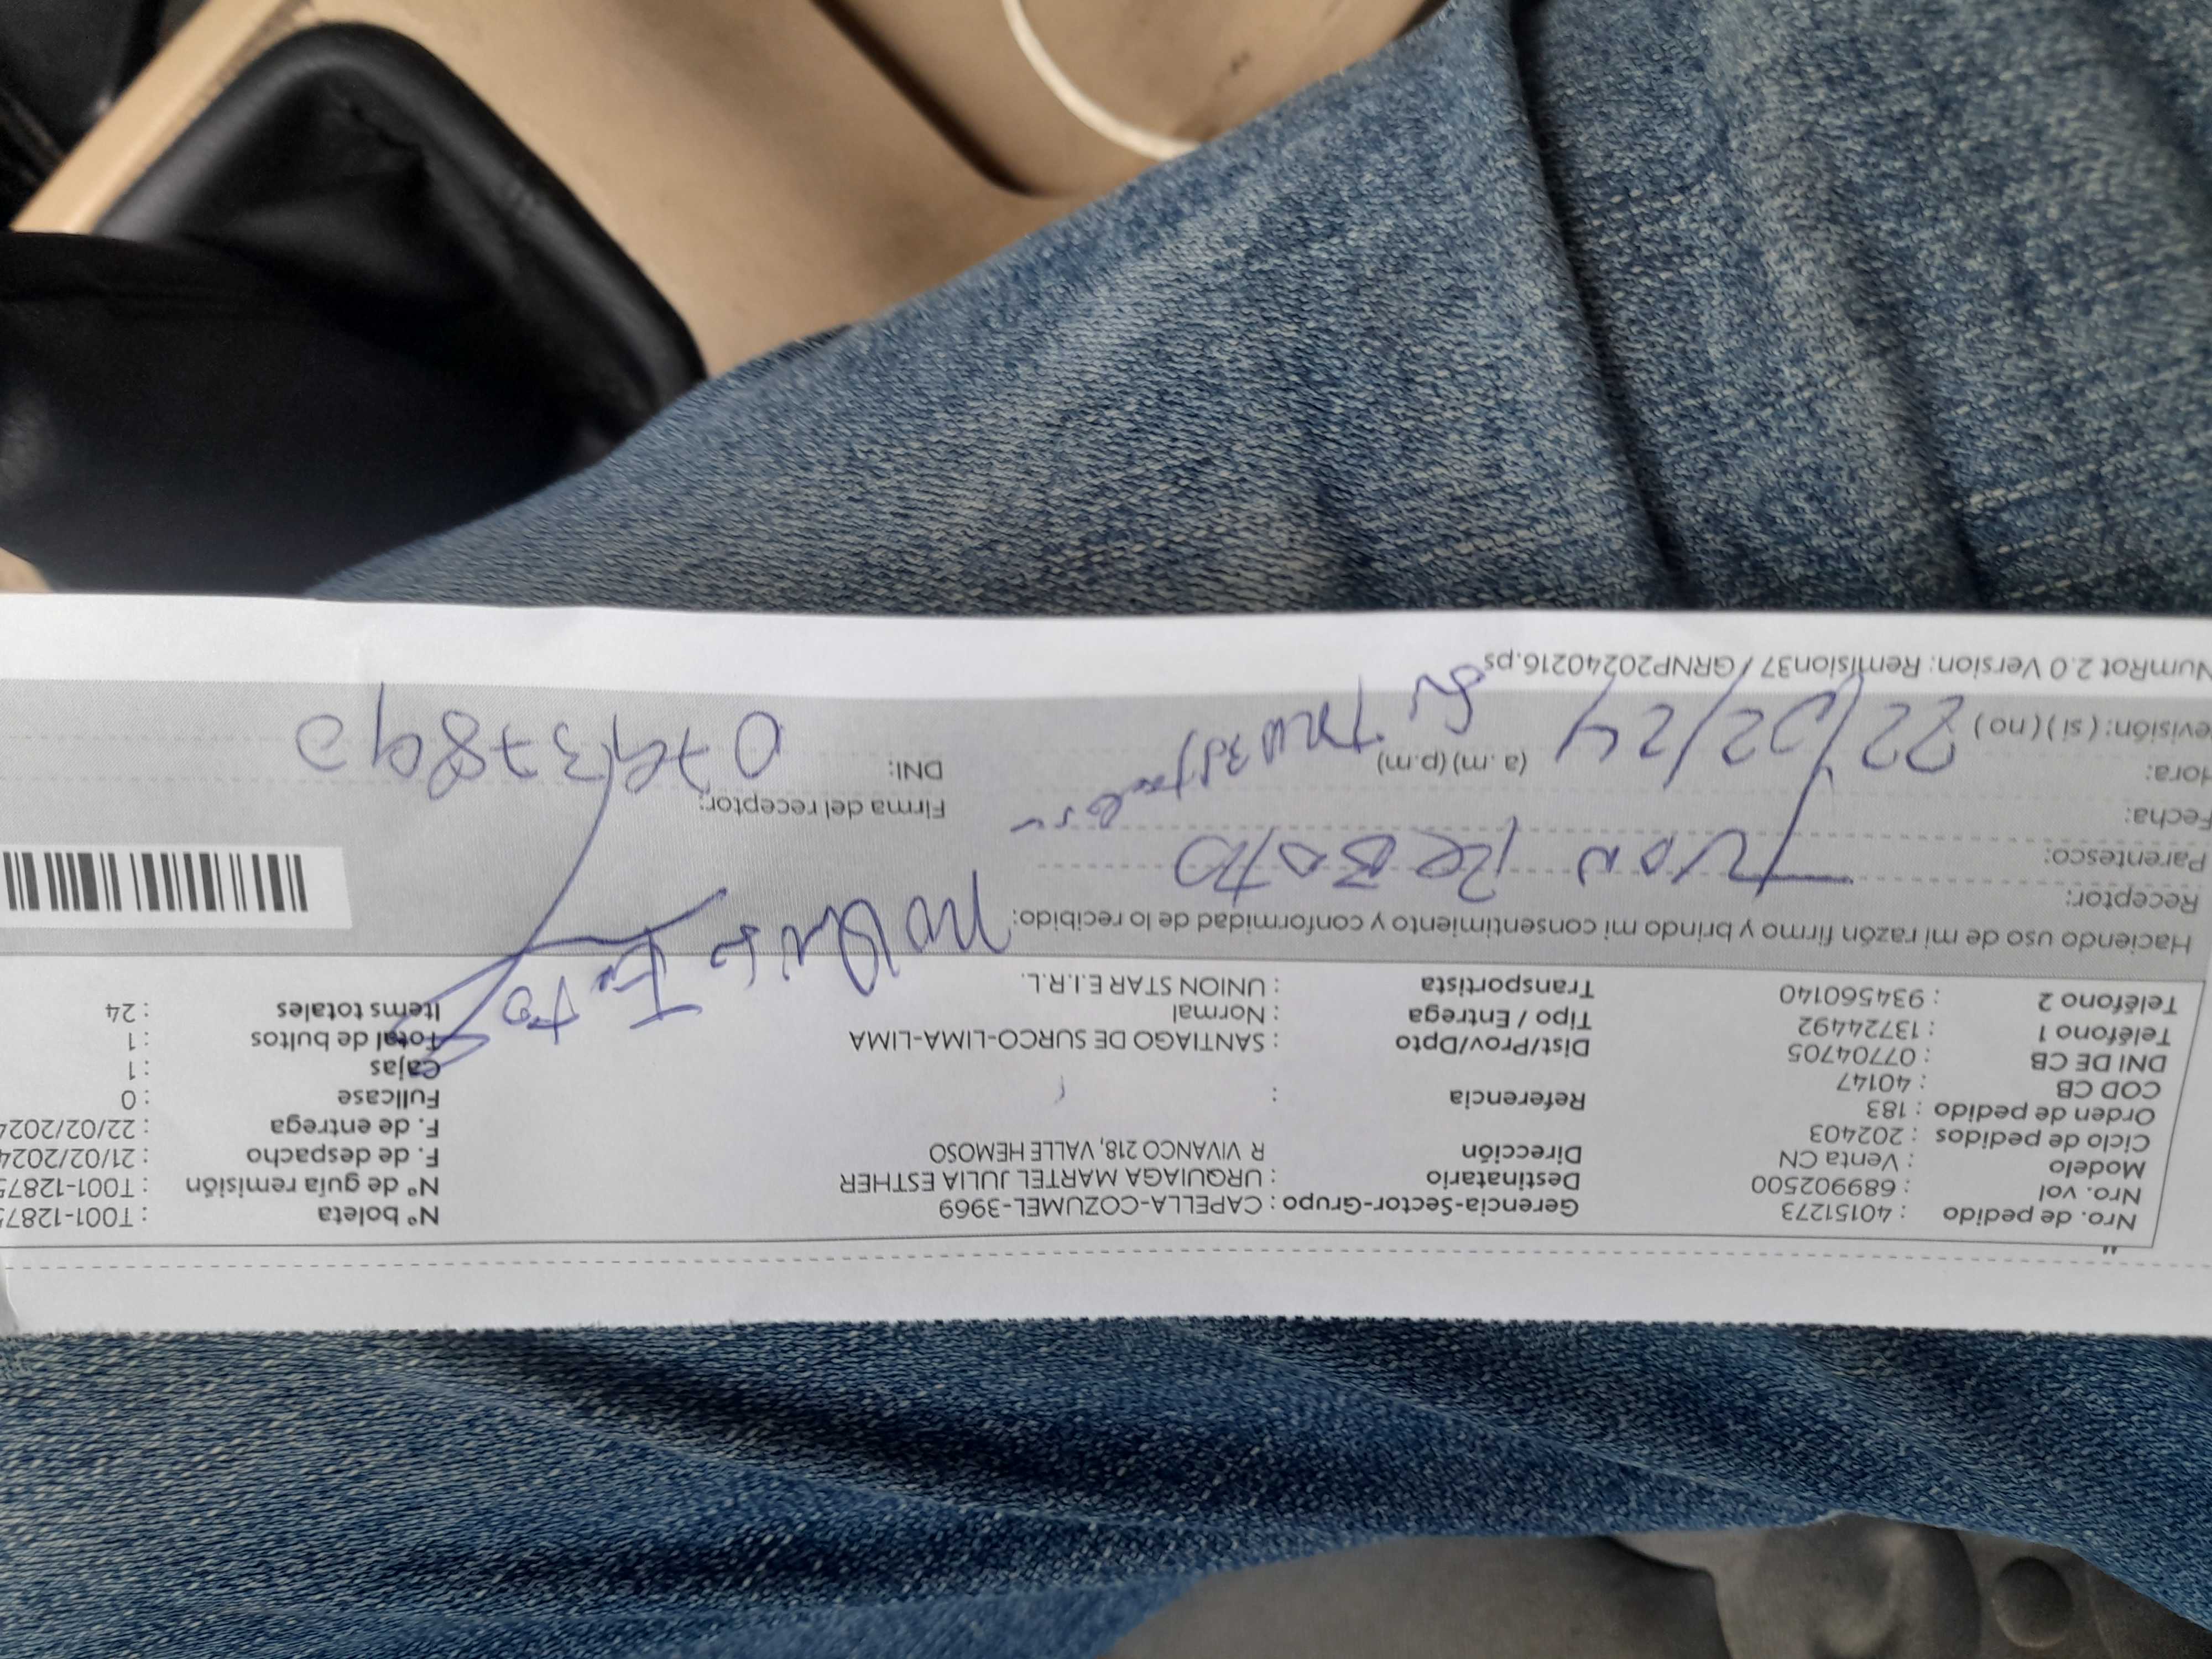 Nro. de pedido : 40151273 Gerencia-Sector-Grupo : CAPELLA-COZUMEL-3969 Nº boleta : T001-12875
Nro. vol : 689902500 Destinatario : URQUIAGA MARTEL JULIA ESTHER Nº de guía remisión : T001-12875
Modelo : Venta CN Dirección R VIVANCO 218, VALLE HEMOSO F. de despacho : 21/02/2024
Ciclo de pedidos : 202403 F. de entrega : 22/02/2024
Orden de pedido : 183 Referencia : Fullcase : 0
COD CB : 40147 Cajas : 1
DNI DE CB : 07704705 Dist/Prov/Dpto : SANTIAGO DE SURCO-LIMA-LIMA Total de bultos : 1
Teléfono 1 : 13724492 Tipo / Entrega : Normal Items totales : 24
Teléfono 2 : 934560140 Transportista : UNION STAR E.I.R.L.
Haciendo uso de mi razón firmo y brindo mi consentimiento y conformidad de lo recibido:
Receptor:
Parentesco:
Fecha: Firma del receptor:
Hora: 22/02/24 (a. m) (p.m) DNI:
evisión: ( si ) ( no )
NumRot 2.0 Version: Remision37 / GRNP20240216.ps